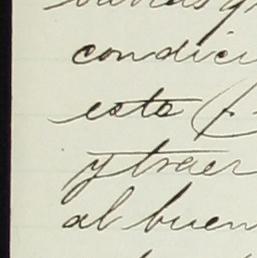 condici
esta (
y traer
al buen